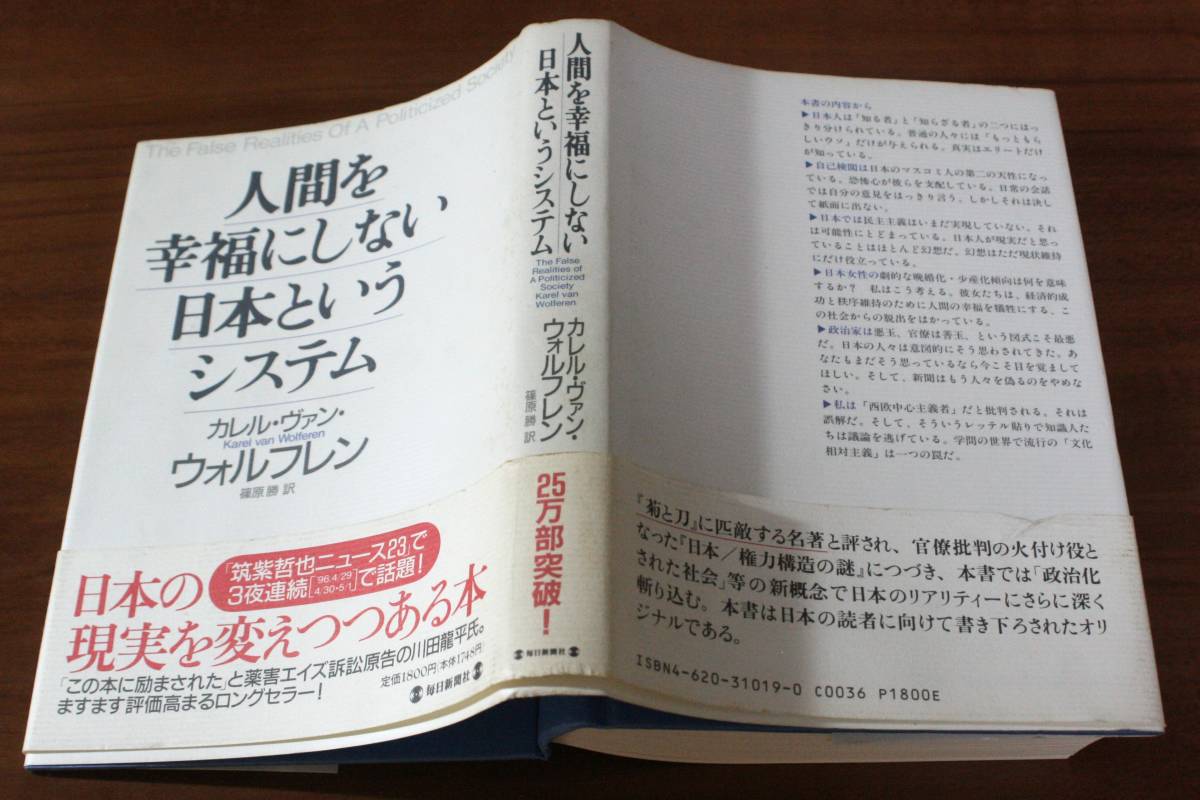 The False Realities Of A Politicized Society
人間を
幸福にしない
日本という
システム
カレル・ヴァン・
Karel van Wolferen
ウォルフレン
篠原勝 訳
「筑紫哲也ニュース23」で
3夜連続['96.4/29 4/30・5/1]で話題!
日本の
現実を変えつつある本
「この本に励まされた」と薬害エイズ訴訟原告の川田龍平氏。
ますます評価高まるロングセラー!
定価1800円(本体1748円)
毎日新聞社
人間を幸福にしない
日本というシステム
The False
Realities of
A Politicized
Society
Karel van
Wolferen
カレル・ヴァン・
ウォルフレン
篠原勝 訳
25万部突破!
毎日新聞社
本書の内容から
▶日本人は「知る者」と「知らざる者」の二つにはっ
きり分けられている。普通の人々には「もっともら
しいウソ」だけが与えられる。真実はエリートだけ
が知っている。
▶自己検閲は日本のマスコミ人の第二の天性になっ
ている。恐怖心が彼らを支配している。日常の会話
では自分の意見をはっきり言う。しかしそれは決し
て紙面に出ない。
▶日本では民主主義はいまだ実現していない。それ
は可能性にとどまっている。日本人が現実だと思っ
ていることはほとんど幻想だ。幻想はただ現状維持
にだけ役立っている。
▶日本女性の劇的な晩婚化・少産化傾向は何を意味
するか? 私はこう考える。彼女たちは、経済的成
功と秩序維持のために人間の幸福を犠牲にする、こ
の社会からの脱出をはかっている。
▶政治家は悪玉、官僚は善玉、という図式こそ最悪
だ。日本の人々は意図的にそう思わされてきた。あ
なたもまだそう思っているなら今こそ目を覚まして
ほしい。そして、新聞はもう人々を偽るのをやめな
さい。
▶私は「西欧中心主義者」だと批判される。それは
誤解だ。そして、そういうレッテル貼りで知識人た
ちは議論を逃げている。学問の世界で流行の「文化
相対主義」は一つの罠だ。
『菊と刀』に匹敵する名著と評され、官僚批判の火付け役と
なった『日本/権力構造の謎』につづき、本書では「政治化
された社会」等の新概念で日本のリアリティーにさらに深く
斬り込む。本書は日本の読者に向けて書き下ろされたオリ
ジナルである。
ISBN4-620-31019-0 C0036 P1800E